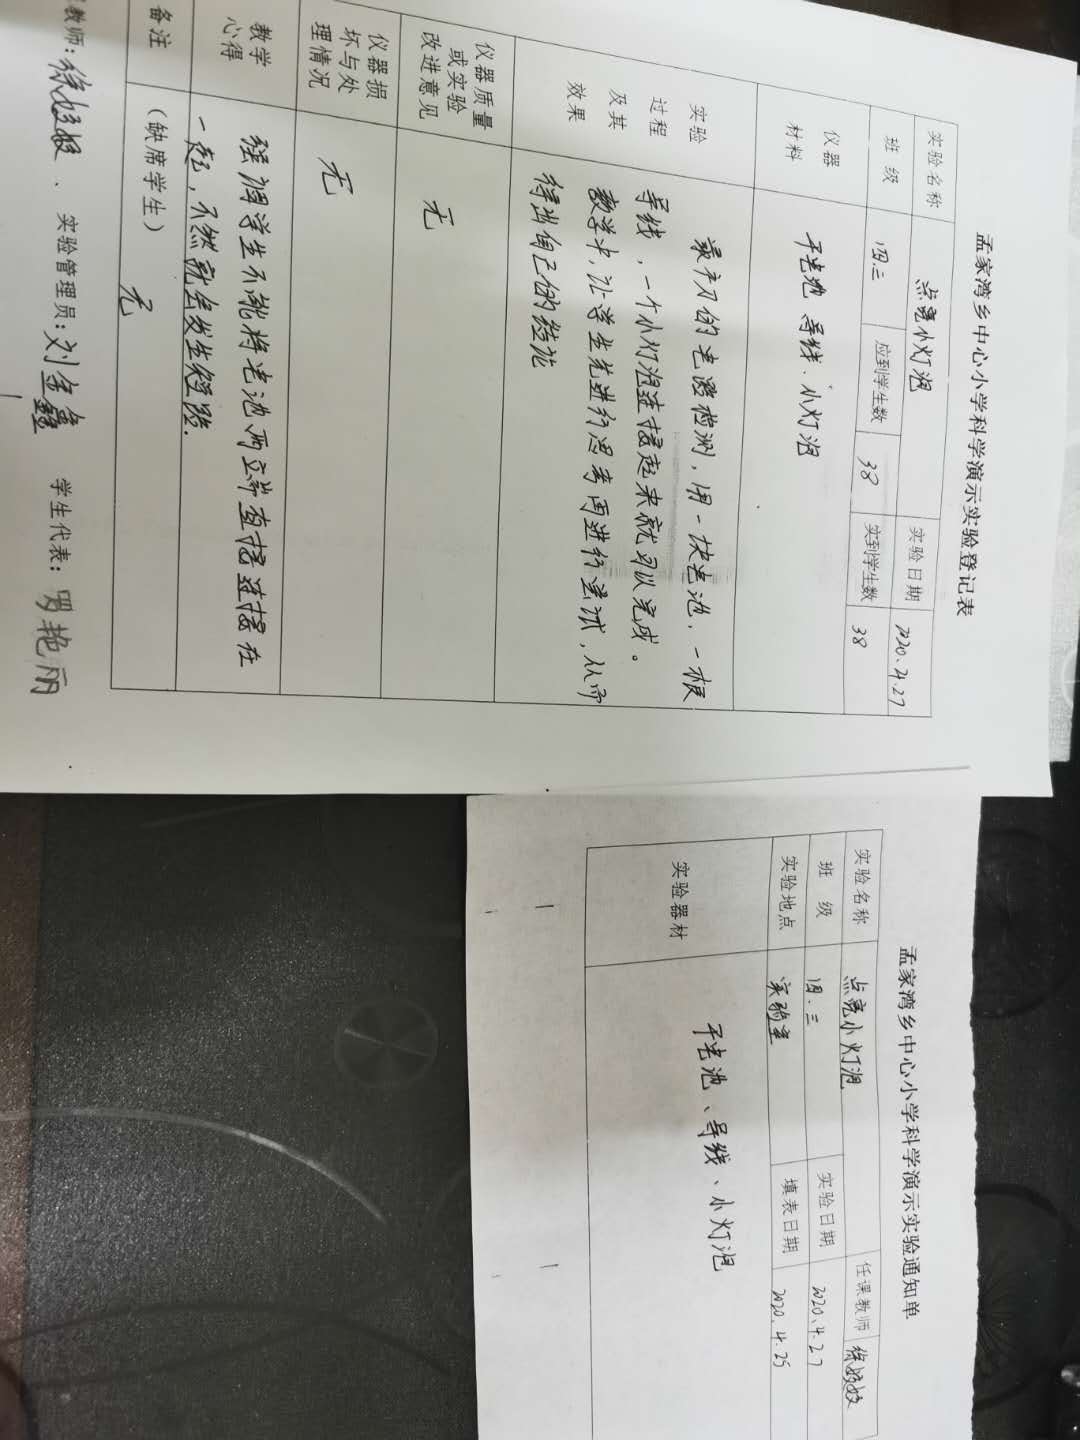 孟家湾乡中心小学科学演示实验登记表
实验名称 点亮小灯泡 实验日期 2020.4.27
班 级 四.三 应到学生数 38 实到学生数 38
仪器材料 干电池 导线、小灯泡
实验过程及其效果
最有力的电源检测,用一块电池,一根
导线,一个小灯泡连接起来就可以完成。
教学中,让学生先进行思考再进行尝试,从而
得出自己的经验
仪器质量或实验改进意见 无
仪器损坏与处理情况 无
教学心得
强调学生不能将电池两端直接连接在
一起,不然就会发生短路.
备注 (缺席学生) 无
教师: 实验管理员:刘金鑫 学生代表:罗艳丽
孟家湾乡中心小学科学演示实验通知单
实验名称 点亮小灯泡 任课教师
班 级 四.三 实验日期 2020.4.27
实验地点 实验室 填表日期 2020.4.25
实验器材 干电池、导线、小灯泡